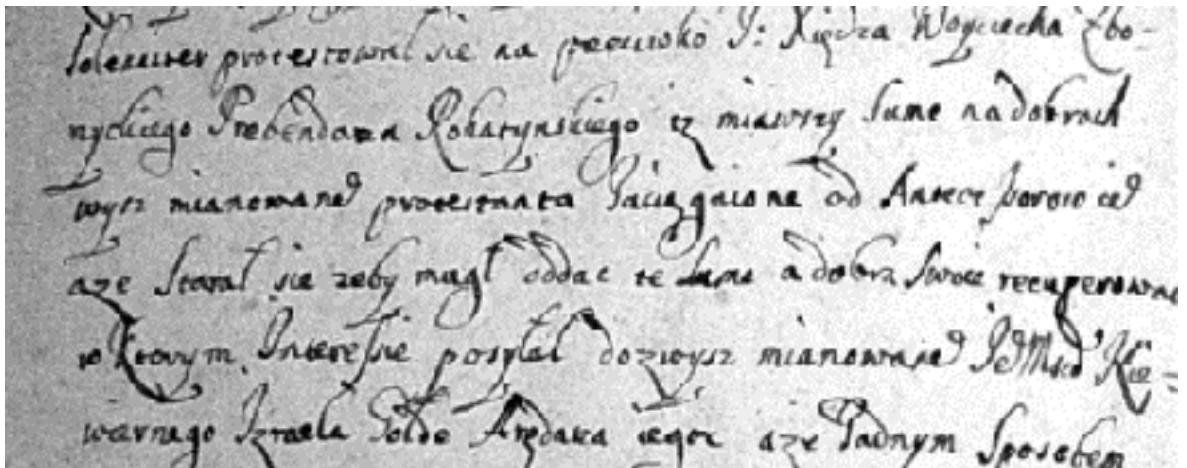 solenniter protestowal sie na przeciwko J: Xiędza Woyciecha Zbo-
nyckiego Prebendarza Rohatynskiego iz miawszy sume na dobrach
wysz mianowane protestanta Zaciągnione od Antecessorow ie
aze starał sie zeby mugł oddac te sume a dobra swoie recuperowac
w ktorym Interesie posyłał do zwysz mianowane JeMsci Xie-
wiernego Izraela Arędarza iego aze Zadnym sposobem